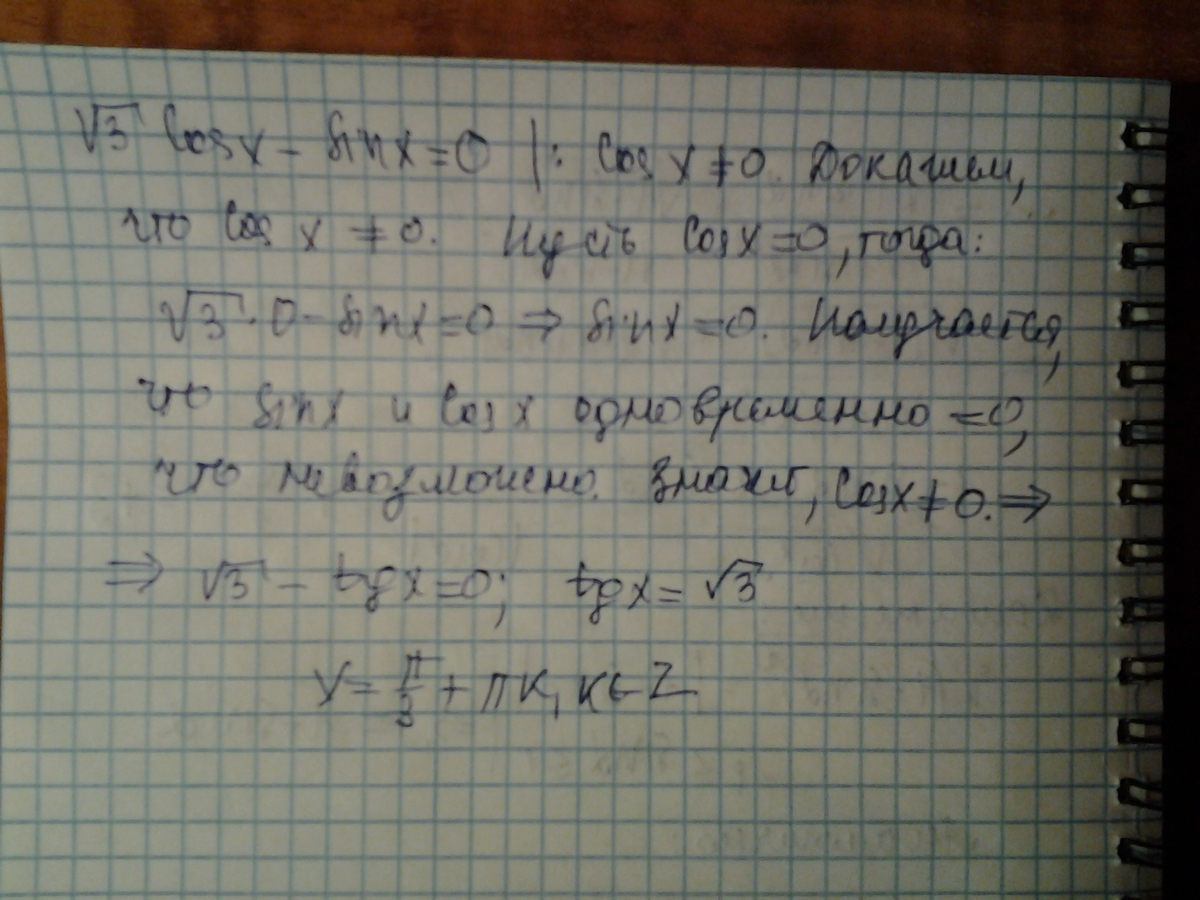 √3 cosx - sinx = 0 |: cos x ≠ 0. Докажем,
что cos x ≠ 0. Пусть cosx = 0, тогда:
√3 · 0 - sinx = 0 ⇒ sinx = 0. Получается,
что sinx и cosx одновременно = 0,
что невозможно. Значит, cosx ≠ 0. ⇒
⇒ √3 - tgx = 0; tgx = √3
x = π/3 + πк, к ∈ Z